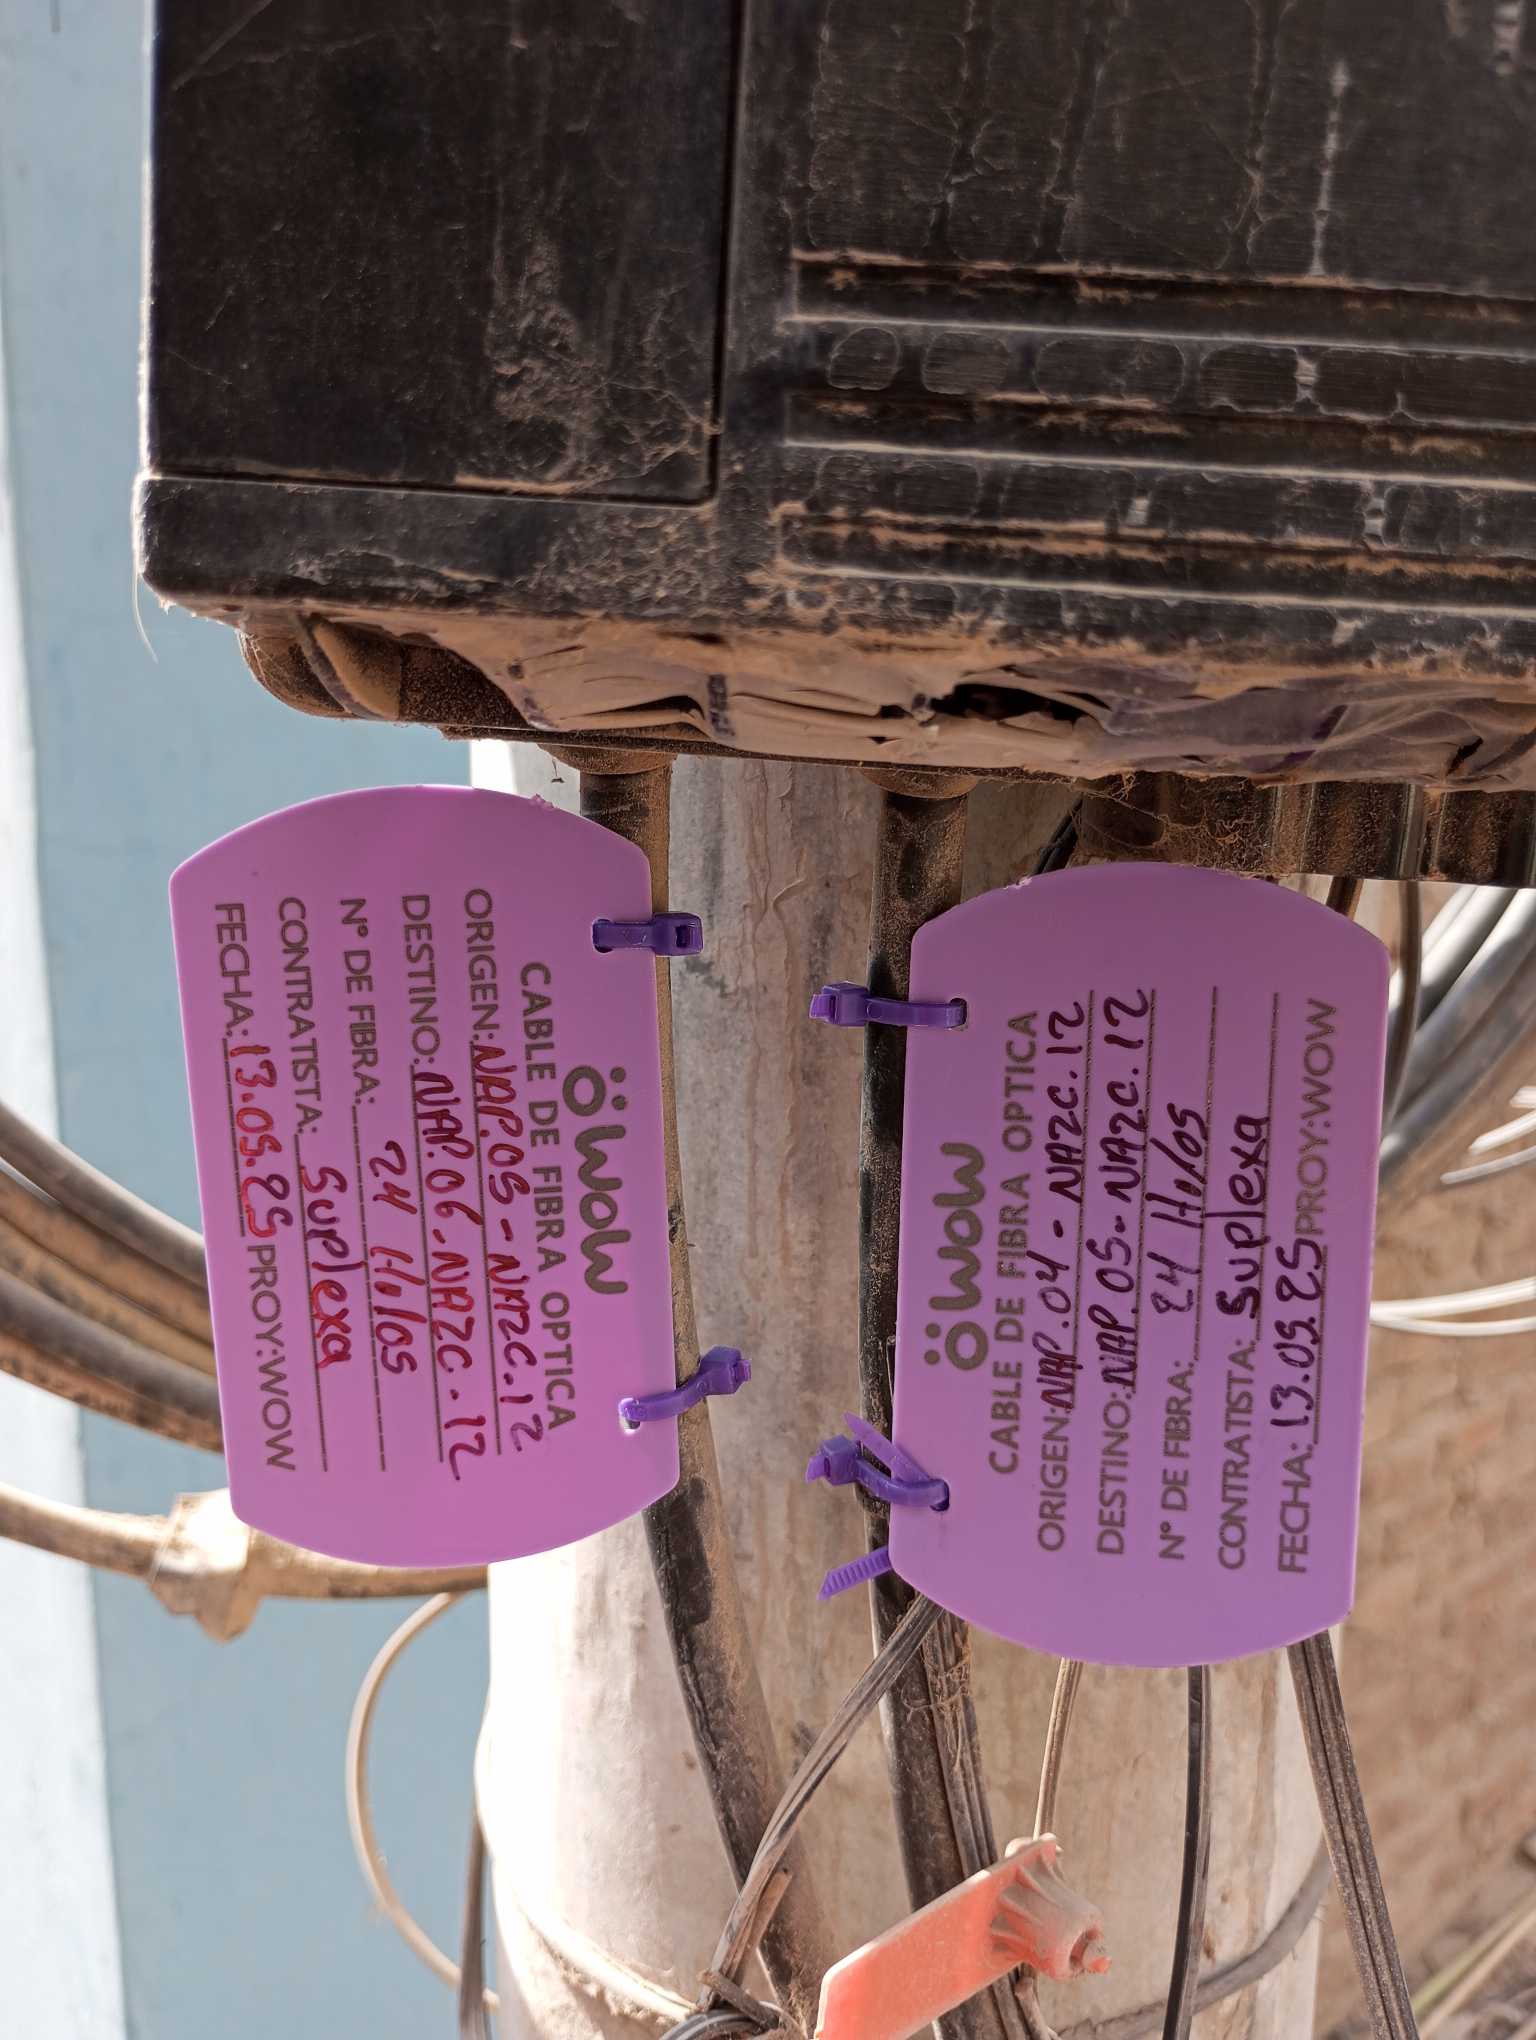 WOW
CABLE DE FIBRA OPTICA
ORIGEN: NAP.05 - NAZC.12
DESTINO: NAP.06 - NAZC.12
N° DE FIBRA: 24 Hilos
CONTRATISTA: Suplexa
FECHA: 13.05.25 PROY:WOW
WOW
CABLE DE FIBRA OPTICA
ORIGEN: NAP.04 - NAZC.12
DESTINO: NAP.05 - NAZC.12
N° DE FIBRA: 24 Hilos
CONTRATISTA: Suplexa
FECHA: 13.05.25 PROY:WOW